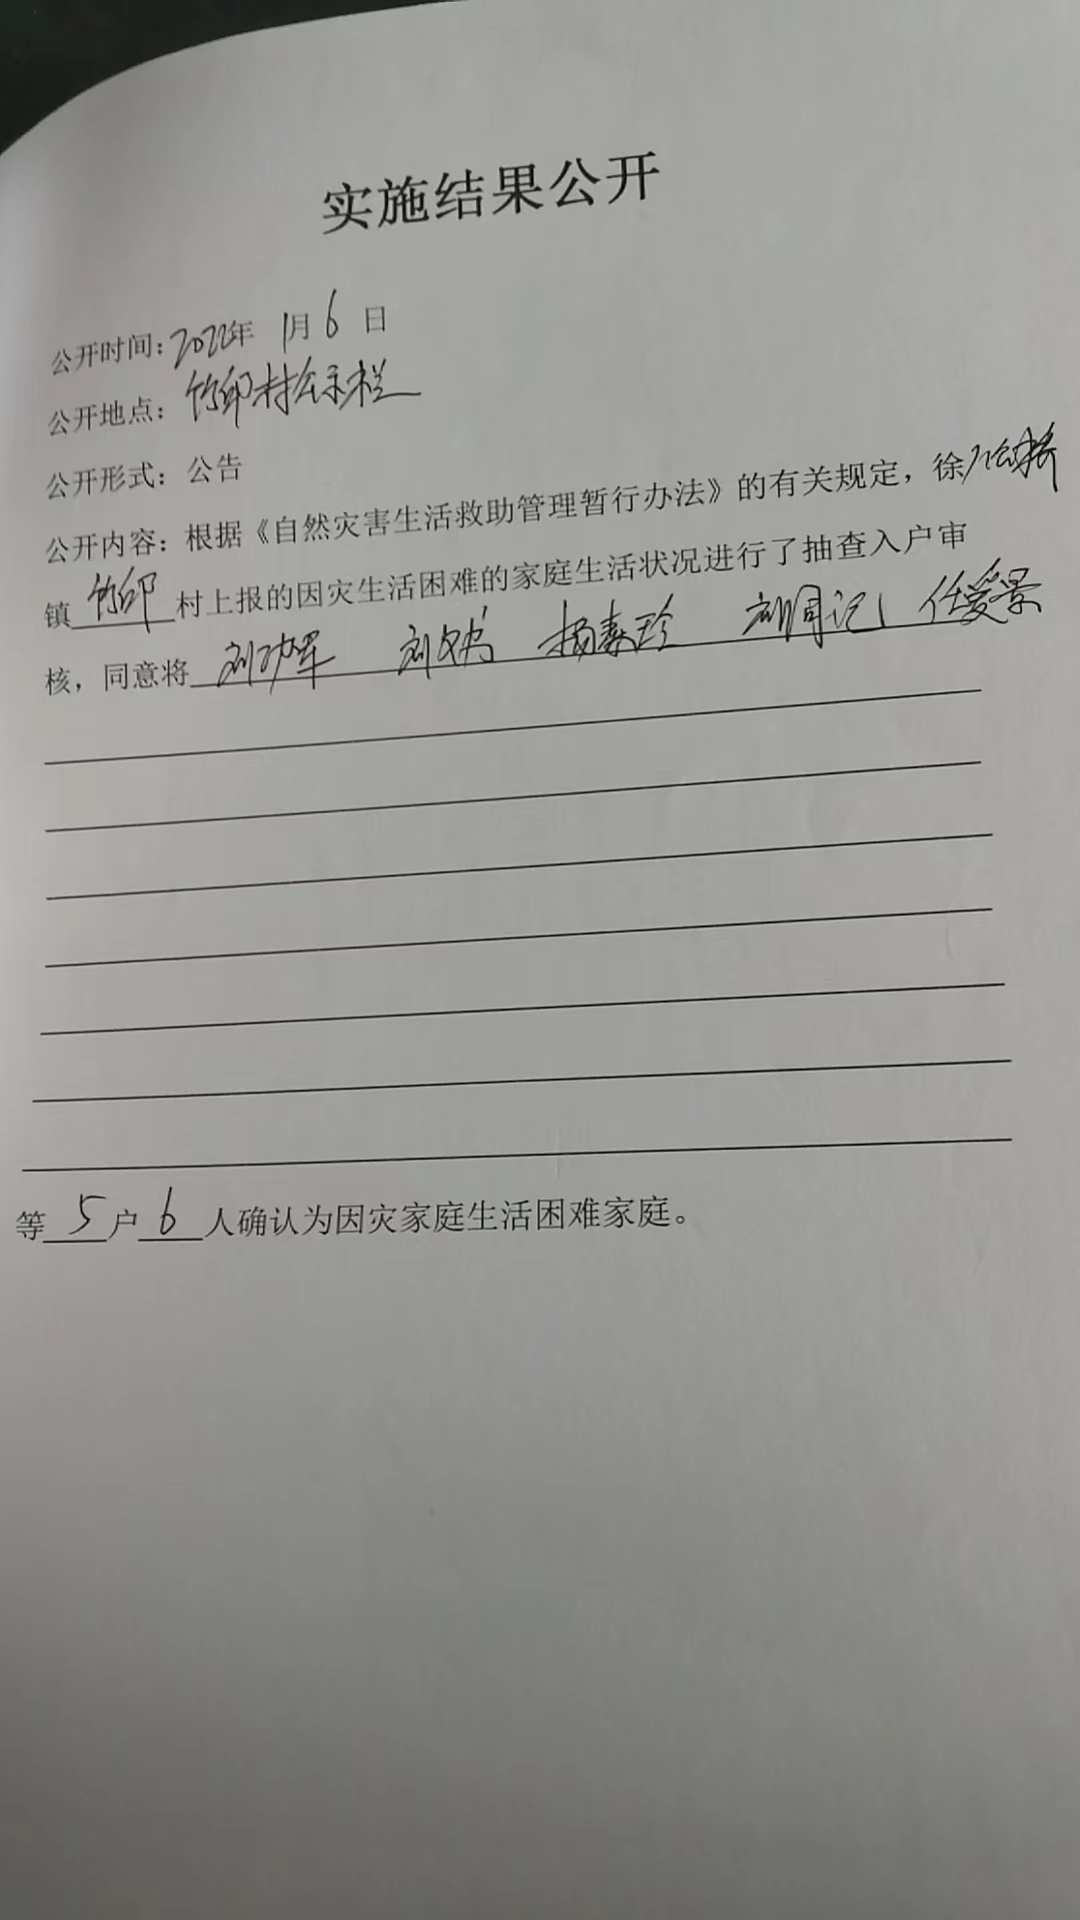 实施结果公开
公开时间:2022年 1月6日
公开地点:竹印村公示栏
公开形式:公告
公开内容:根据《自然灾害生活救助管理暂行办法》的有关规定,徐
镇 竹印 村上报的因灾生活困难的家庭生活状况进行了抽查入户审
核,同意将 刘功军 刘 杨素珍 刘同记 任爱景
等 5 户 6 人确认为因灾家庭生活困难家庭。